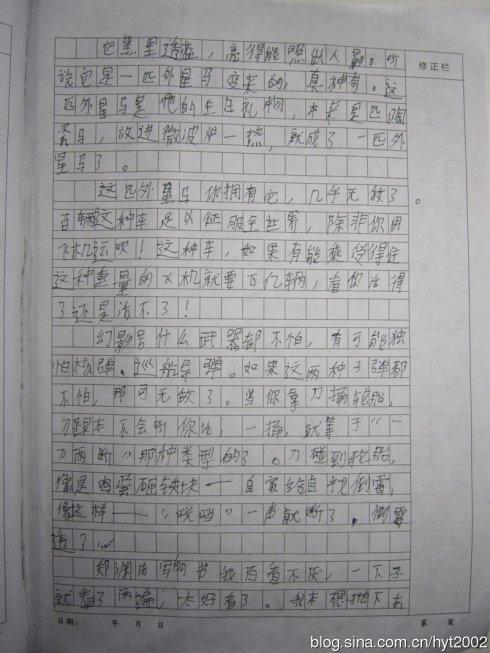 它黑里透蓝，亮得能照出人影。听
修正栏
说它是一匹外星马变来的，真神奇。这
匹外星马是他的生日礼物，本来是匹陶
瓷马，放进微波炉一热，就成了一匹外
星马了。
这匹外星马你拥有它，几乎无敌了。
百辆这种车足以征服全世界，除非你用
飞机运吹！这种车，如果有能乘受得住
这种重量的飞机就要万亿辆，看你活得
了还是活不了！
幻影号什么武器都不怕，有可能独
怕核弹、巡船导弹。如果这两种子弹都
不怕，那可无敌了。当你拿刀捅轮胎，
刀根本不会听你话，一捅，就等于“一
刀两断”那种类型的了。刀碰到轮胎，
像是鸡蛋砸铁块——自家给自找倒霉，
像这样——“咣当”一声就断了，倒霉
透了……
郑渊洁写的书我百看不厌，一下子
就看了两遍，太好看了。我本想
日期： 年 月 日
第 页
blog.sina.com.cn/hyt2002